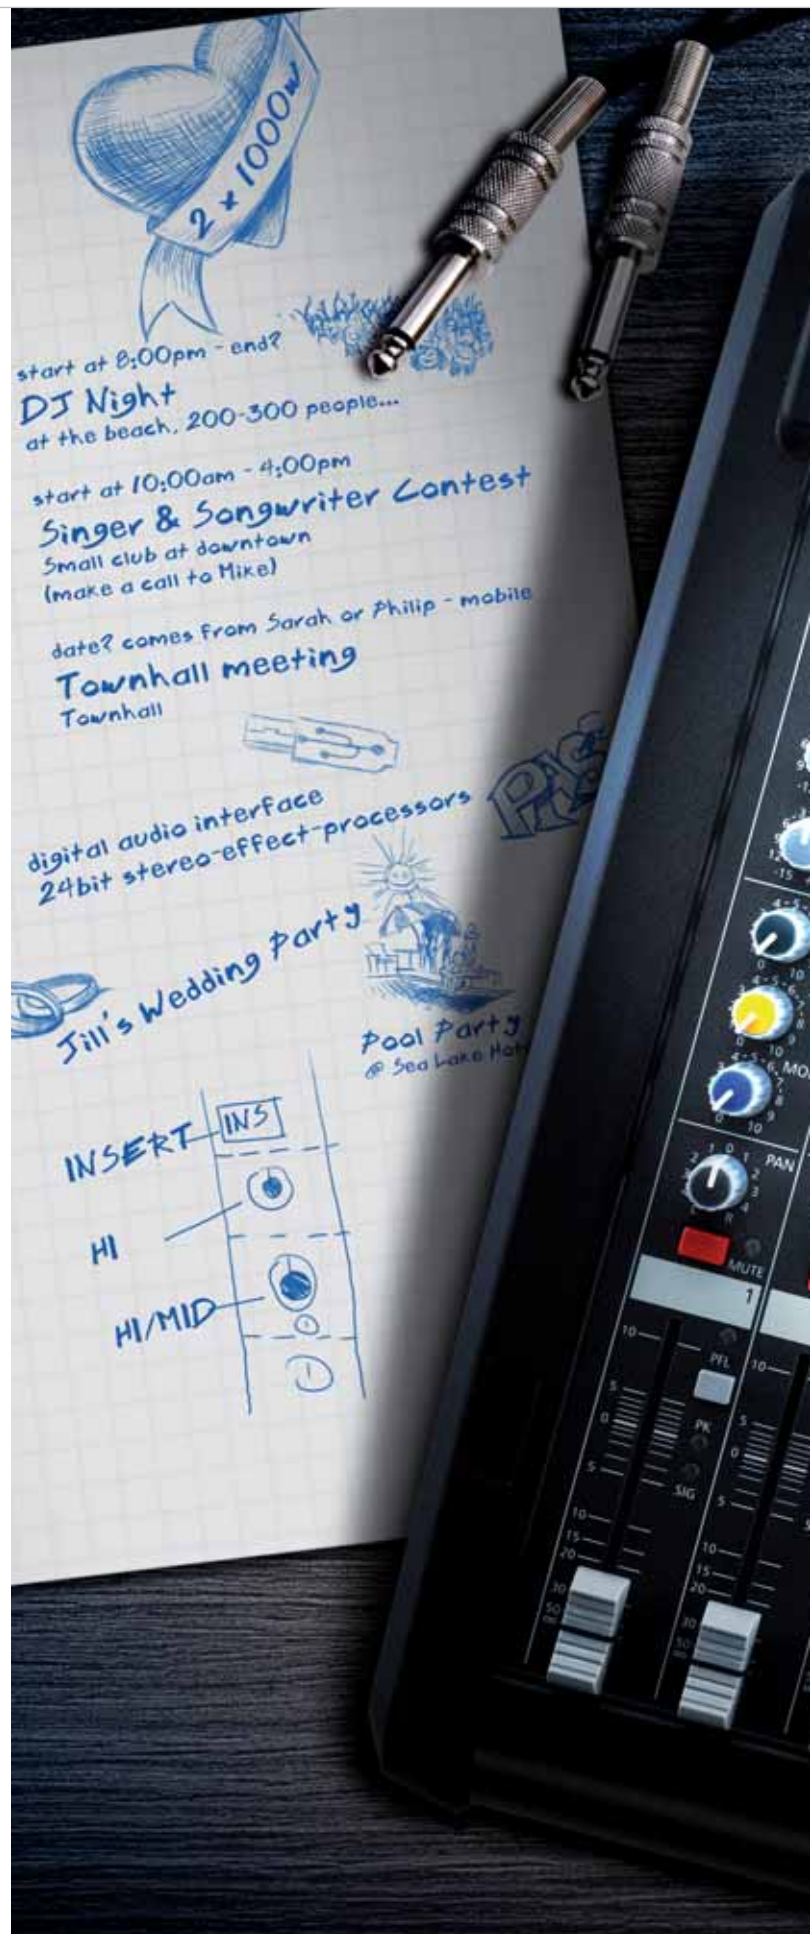 2 x 1000w
start at 8:00pm - end?
DJ Night
at the beach, 200-300 people...
start at 10:00am - 4:00pm
Singer & Songwriter Contest
Small club at downtown
(make a call to Mike)
date? comes from Sarah or Philip - mobile
Townhall meeting
Townhall
digital audio interface
24bit stereo-effect-processors
Jill's Wedding Party
Pool Party
@ Sea Lake
INSERT INS
HI
HI/MID
PAN
MUTE
1
PFL
PK
SIG